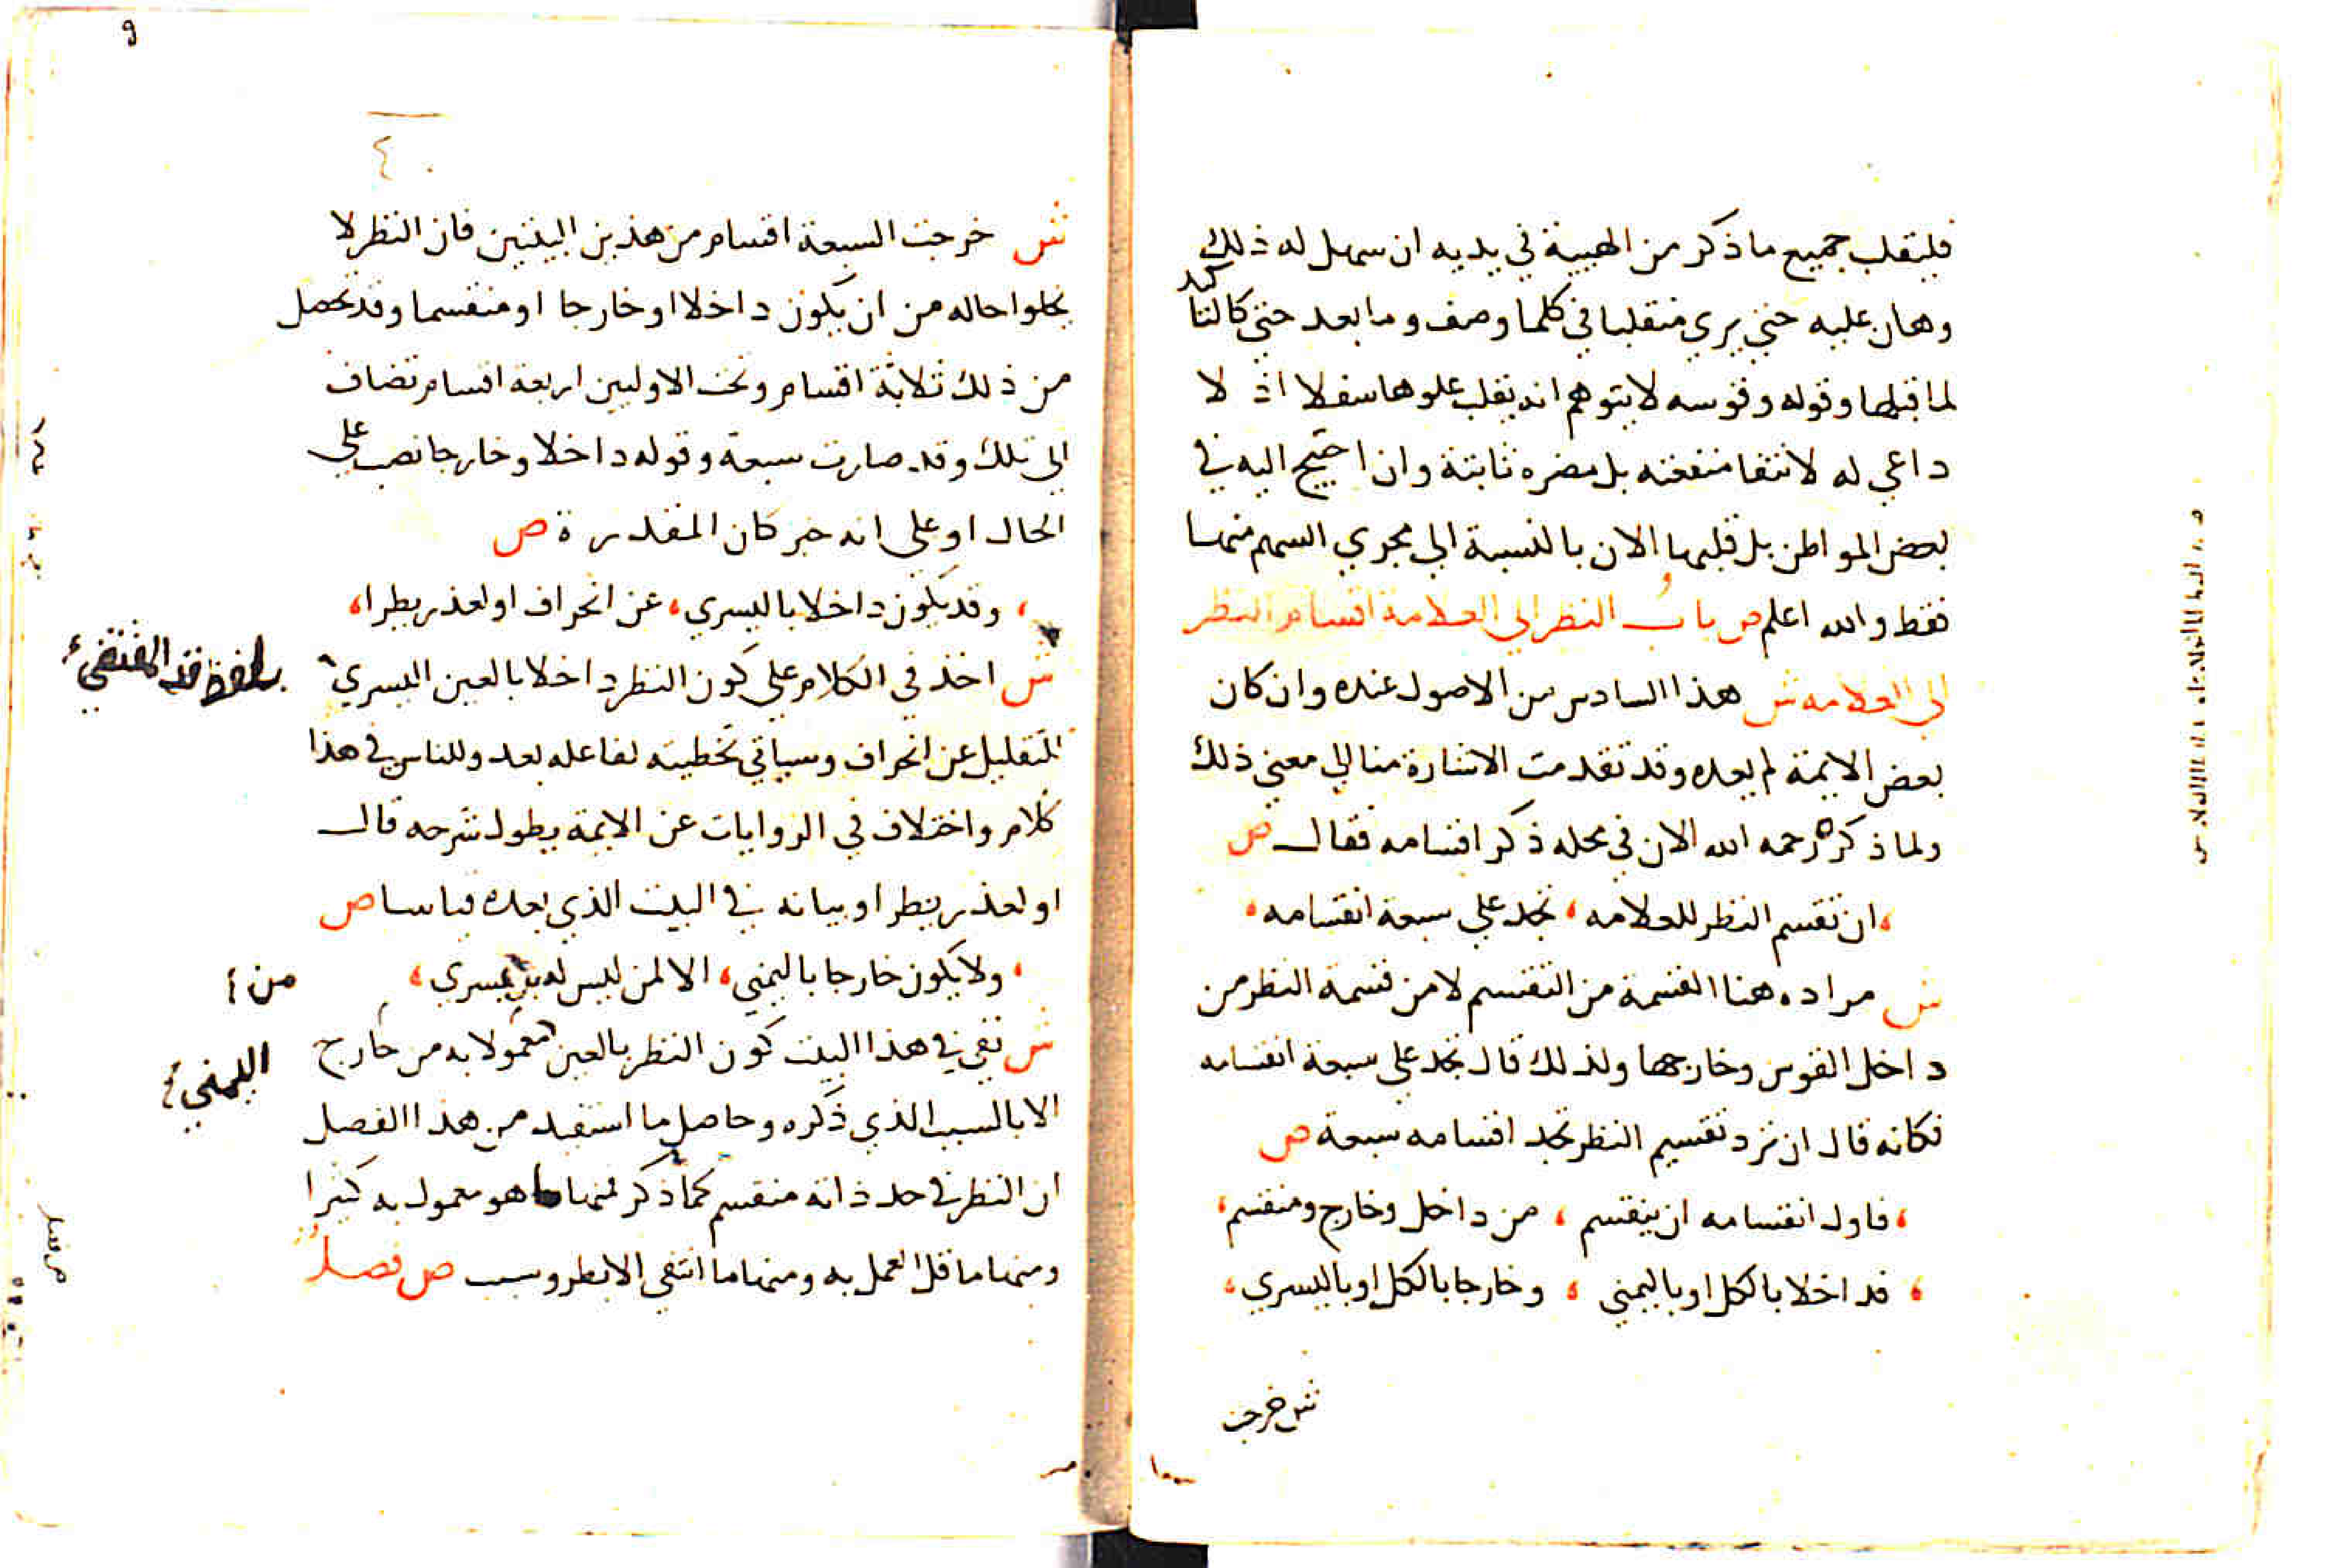 فليتقلب جميع ما ذكر من الهيية في يديه ان سهل له ذلك
وهان عليه حتى يري متقلبا في كلما وصف وما بعد حتى كالتاكيد
لما قبلها وقوله وقوسه لا يتوهم انه يقلب علوها سفلا اذ لا
داعي له لانتفا منفعته بل مضره ثابتة وان احتيج اليه في
بعض المواطن بل قلبها الان بالنسبة الي مجري السهم منها
فقط والله اعلم ص باب النظر الي العلامة اقسام النظر
الي العلامه ش هذا السادس من الاصول عنده وان كان
بعض الايمة لم يعده وقد تقدمت الاشارة منا الي معني ذلك
ولما ذكره رحمه الله الان في محله ذكر اقسامه فقال ص
، ان تقسم النظر للعلامه ، تجد علي سبعة انقسامه ،
ش مراده هنا القسمة من التقسم لا من قسمة النظر من
داخل القوس وخارجها ولذلك قال تجد علي سبعة انقسامه
فكانه قال ان ترد تقسيم النظر تجد اقسامه سبعة ص
، فاول انقسامه ان ينقسم ، من داخل وخارج ومنقسم ،
، فداخلا بالكل او باليمني ، وخارجا بالكل او باليسري ،
ش خرجت
و
٤٠
ش خرجت السبعة اقسام من هذين البيتين فان النظر لا
يخلوا حاله من ان يكون داخلا او خارجا او منقسما وقد تحصل
من ذلك ثلاثة اقسام وتحت الاولين اربعة اقسام تضاف
الي تلك وقد صارت سبعة وقوله داخلا وخارجا نصب علي
الحال او علي انه خبر كان المقدرة ص
، وقد يكون داخلا باليسري ، عن انحراف او لعذر يطرا ،
ش اخذ في الكلام علي كون النظر داخلا بالعين اليسري
بلفظ قد المقتضي
للتقليل عن انحراف وسياتي تخطيته لفاعله بعد وللناس في هذا
كلام واختلاف في الروايات عن الايمة يطول شرحه قال
او لعذر يطرا وبيانه في البيت الذي بعده قياسا ص
، ولا يكون خارجا باليمني ، الا لمن ليس له يسري ،
من
ش نفي في هذا البيت كون النظر بالعين معمولا به من خارج
اليمني
الا بالسبب الذي ذكره وحاصل ما استفيد من هذا الفصل
ان النظر في حد ذاته منقسم كما ذكر فمنها ما هو معمول به كثيرا
ومنها ما قل العمل به ومنها ما انتفي الا بطرو سبب ص فصل